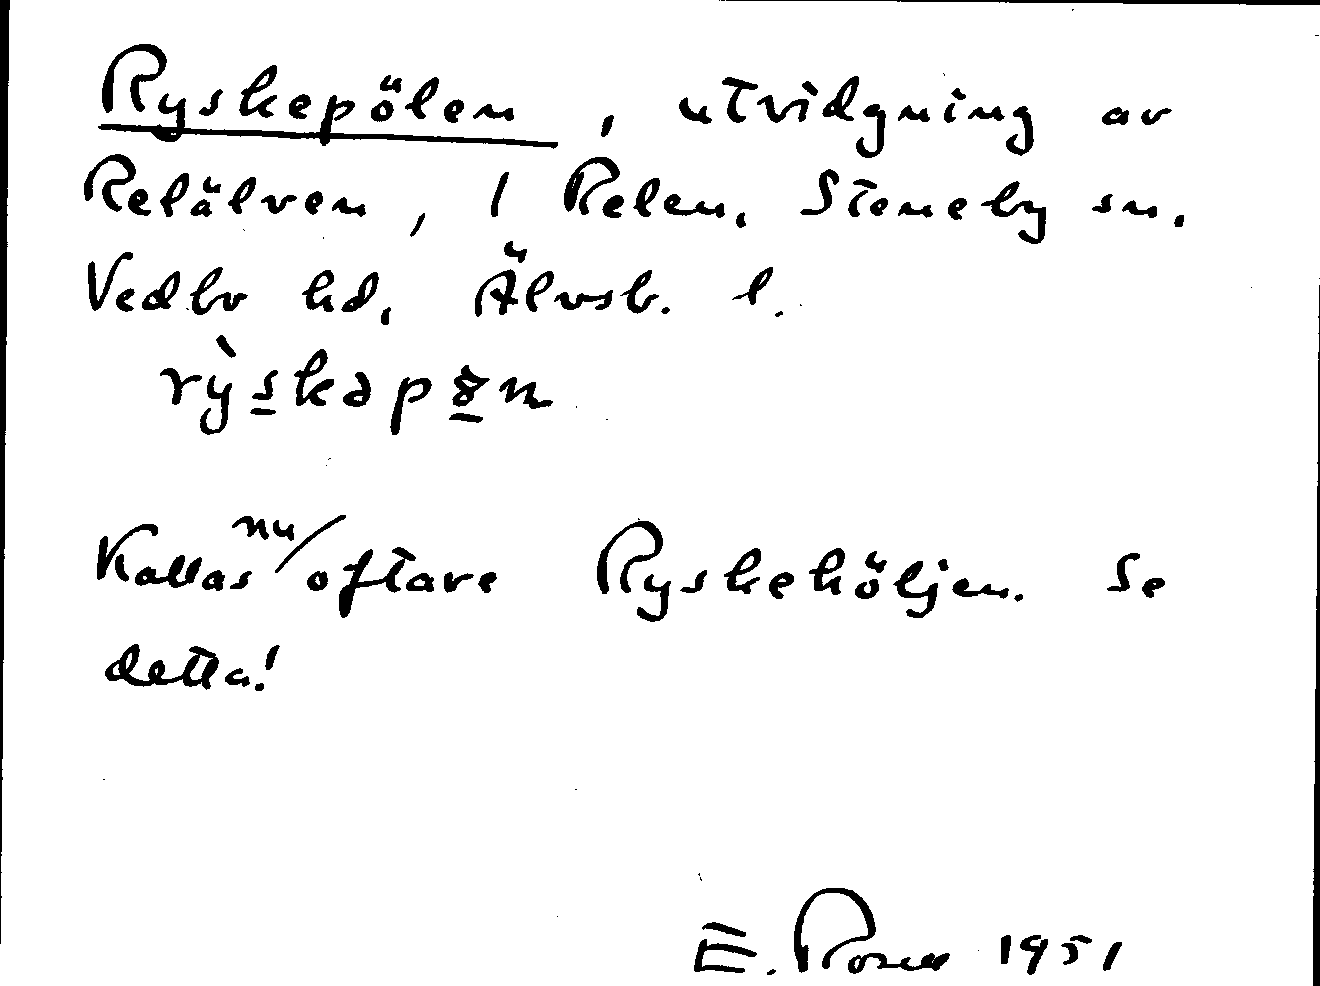 Ryskepölen, utvidgning av
Relälven, 1 Relen. Steneby sn.
Vedbo hd. Älvsb. l.
rỳskəpɷ̈n
Kallas nu/oftare Ryskehöljen. Se
detta!
E. Rosell 1951